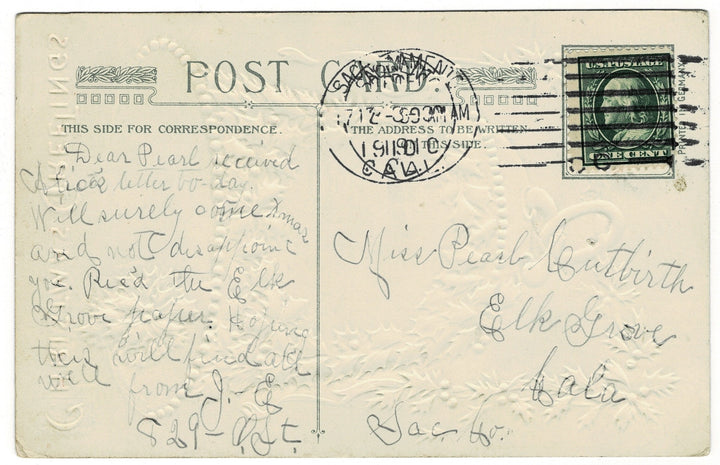 POST CARD
THIS SIDE FOR CORRESPONDENCE.
THE ADDRESS TO BE WRITTEN
THIS SIDE.
SACRAMENTO
1910
CAL.
U.S. POSTAGE
ONE CENT
PRINTED IN GERMANY
Dear Pearl received
Alices letter to-day.
Will surely come Xmas
and not disappoint
you. Rec'd the Elk
Grove paper. Hoping
this will find all
well from J. E
829- St.
Miss Pearl Cutbirth
Elk Grove
Cala
Sac. Co.